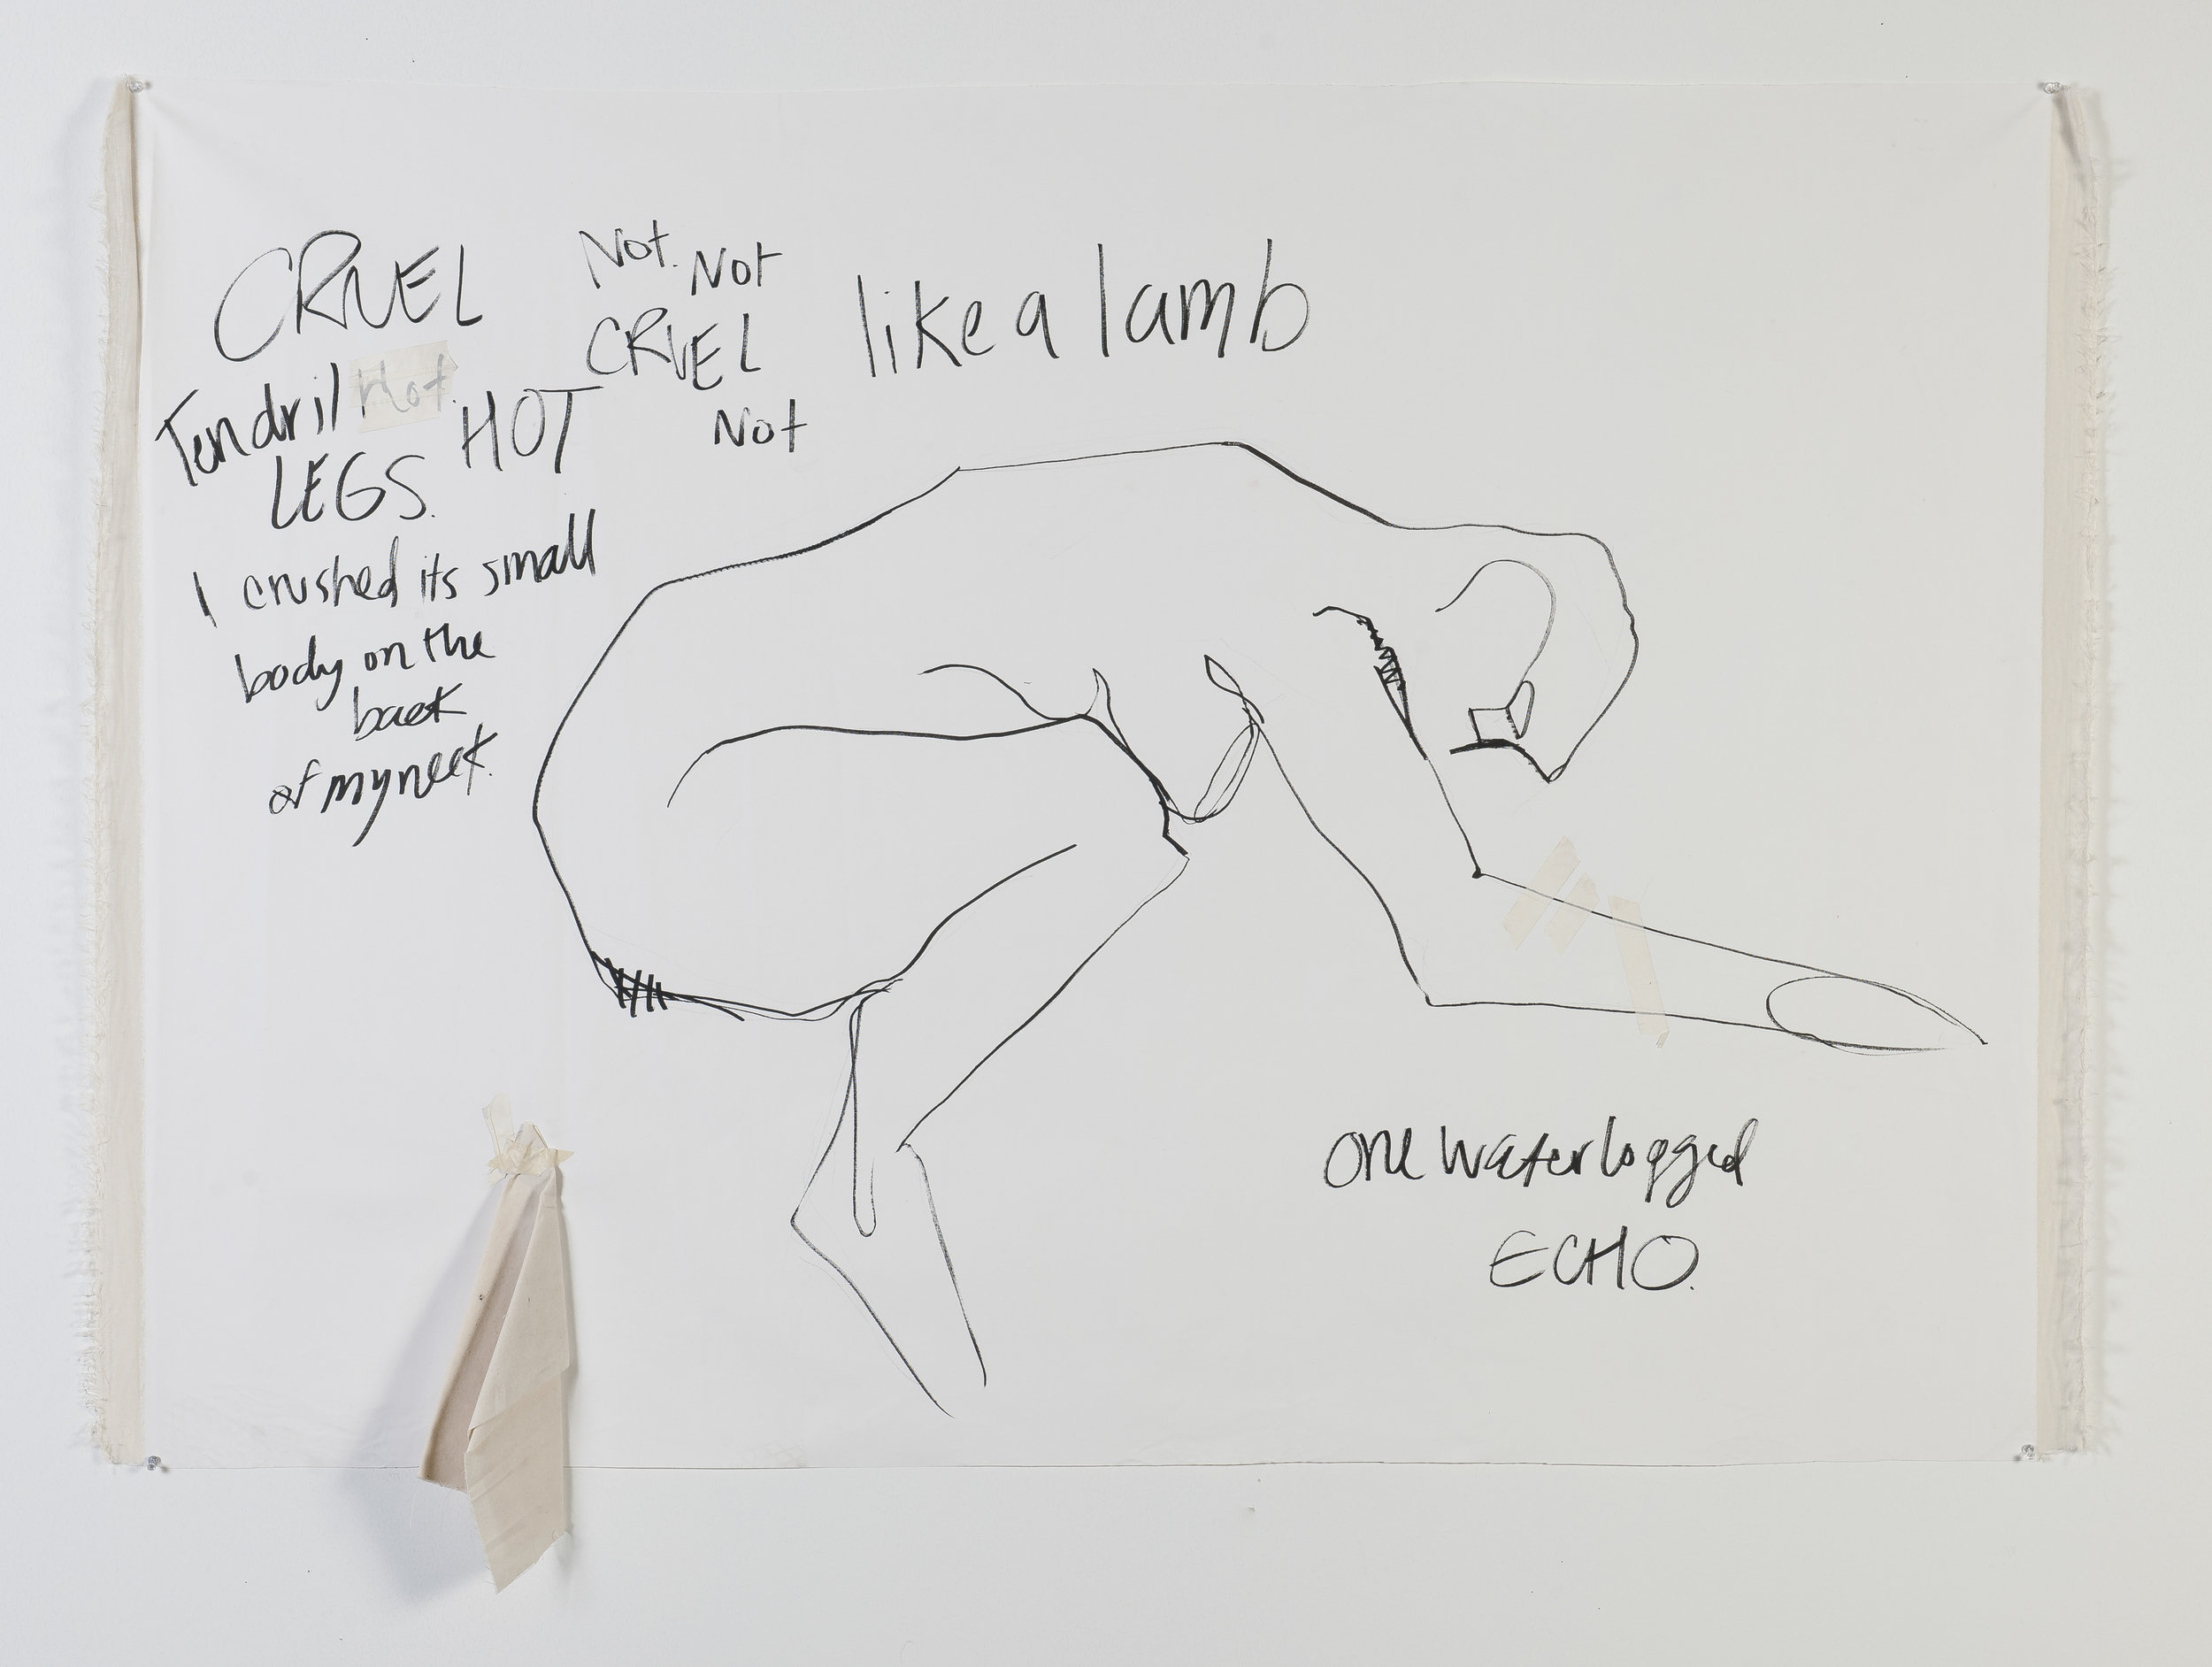 CRUEL
Tendril Hot.
LEGS. HOT
I crushed its small
body on the
back
of my neck.
Not. Not
CRUEL
Not
like a lamb
one waterlogged
ECHO.